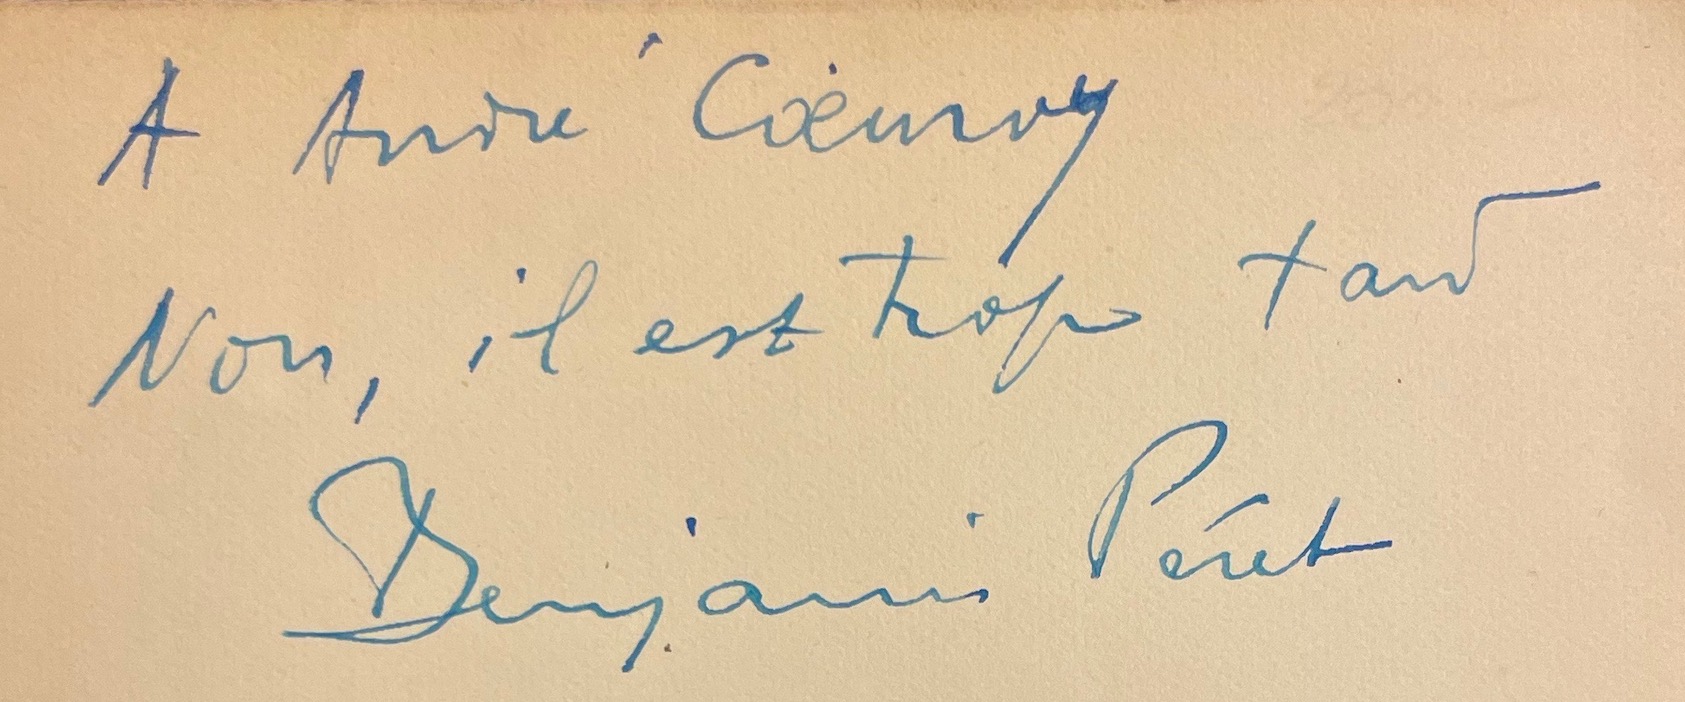 A André Cœuroy
Non, il est trop tard
Benjamin Péret